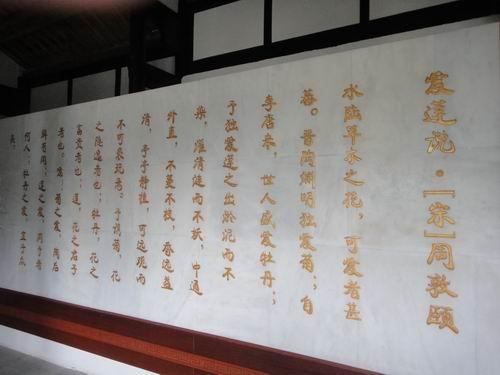 爱莲说·[宋]周敦颐
水陆草木之花，可爱者甚
蕃。晋陶渊明独爱菊；自
李唐来，世人盛爱牡丹；
予独爱莲之出淤泥而不
染，濯清涟而不妖，中通
外直，不蔓不枝，香远益
清，亭亭静植，可远观而
不可亵玩焉。予谓菊，花
之隐逸者也；牡丹，花之
富贵者也；莲，花之君子
者也。噫！菊之爱，陶后
鲜有闻；莲之爱，同予者
何人；牡丹之爱，宜乎众
矣。